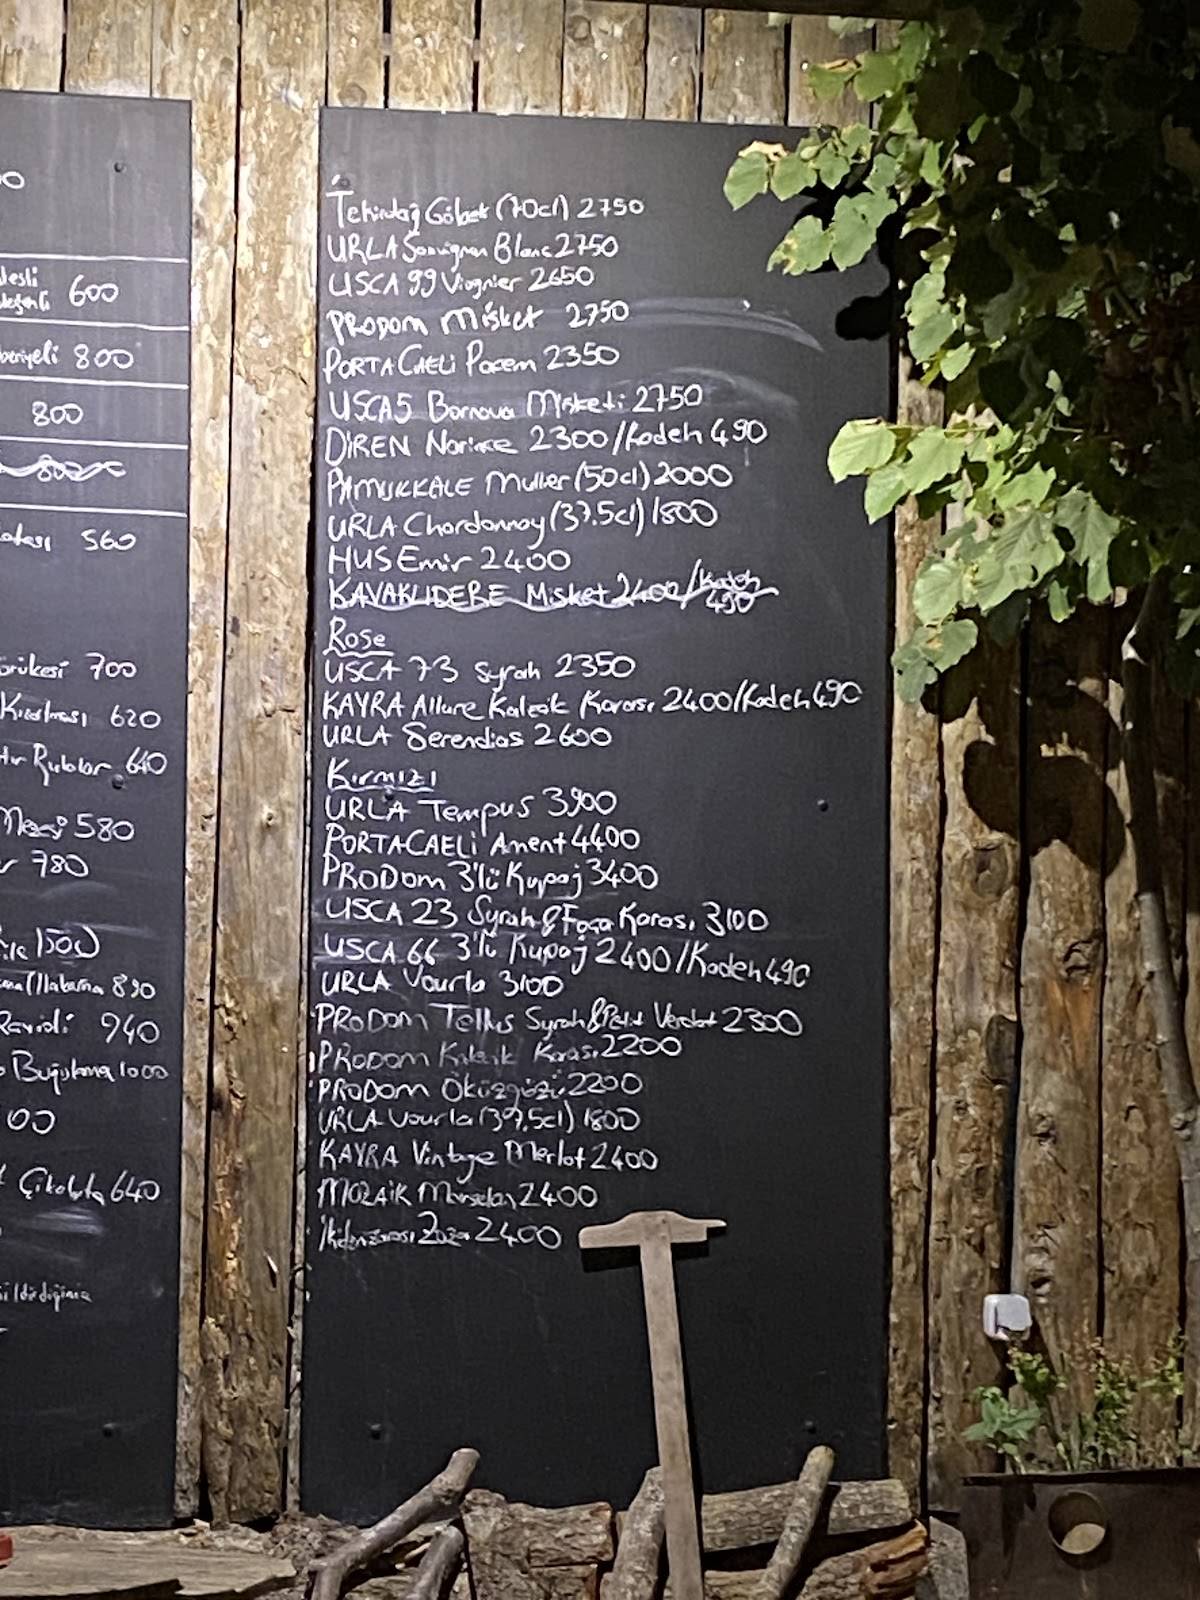 00
600
800
800
800
560
700
620
640
580
780
1500
890
Ravioli 940
Buğulama 1000
00
Çikolata 640
Tekirdağ Göbek (70cl) 2750
URLA Sauvignon Blanc 2750
USCA 99 Viognier 2650
PRODOM Misket 2750
PORTA CAELİ Pacem 2350
USCA5 Bornova Misketi 2750
DİREN Narince 2300/Kadeh 490
PAMUKKALE Muller (50cl) 2000
URLA Chardonnay (37.5cl) 1800
HUS Emir 2400
KAVAKLIDERE Misket 2400/Kadeh 490
Rose
USCA 73 Syrah 2350
KAYRA Allure Kalecik Karası 2400/Kadeh 490
URLA Serendias 2600
Kırmızı
URLA Tempus 3900
PORTACAELİ Ament 4400
PRODOM 3'lü Kupaj 3400
USCA 23 Syrah & Foça Karası 3100
USCA 66 3'lü Kupaj 2400/Kadeh 490
URLA Vourla 3100
PRODOM Tellus Syrah & Petit Verdot 2300
PRODOM Kalecik Karası 2200
PRODOM Öküzgözü 2200
URLA Vourla (37,5cl) 1800
KAYRA Vintage Merlot 2400
MOZAİK Marselan 2400
2400